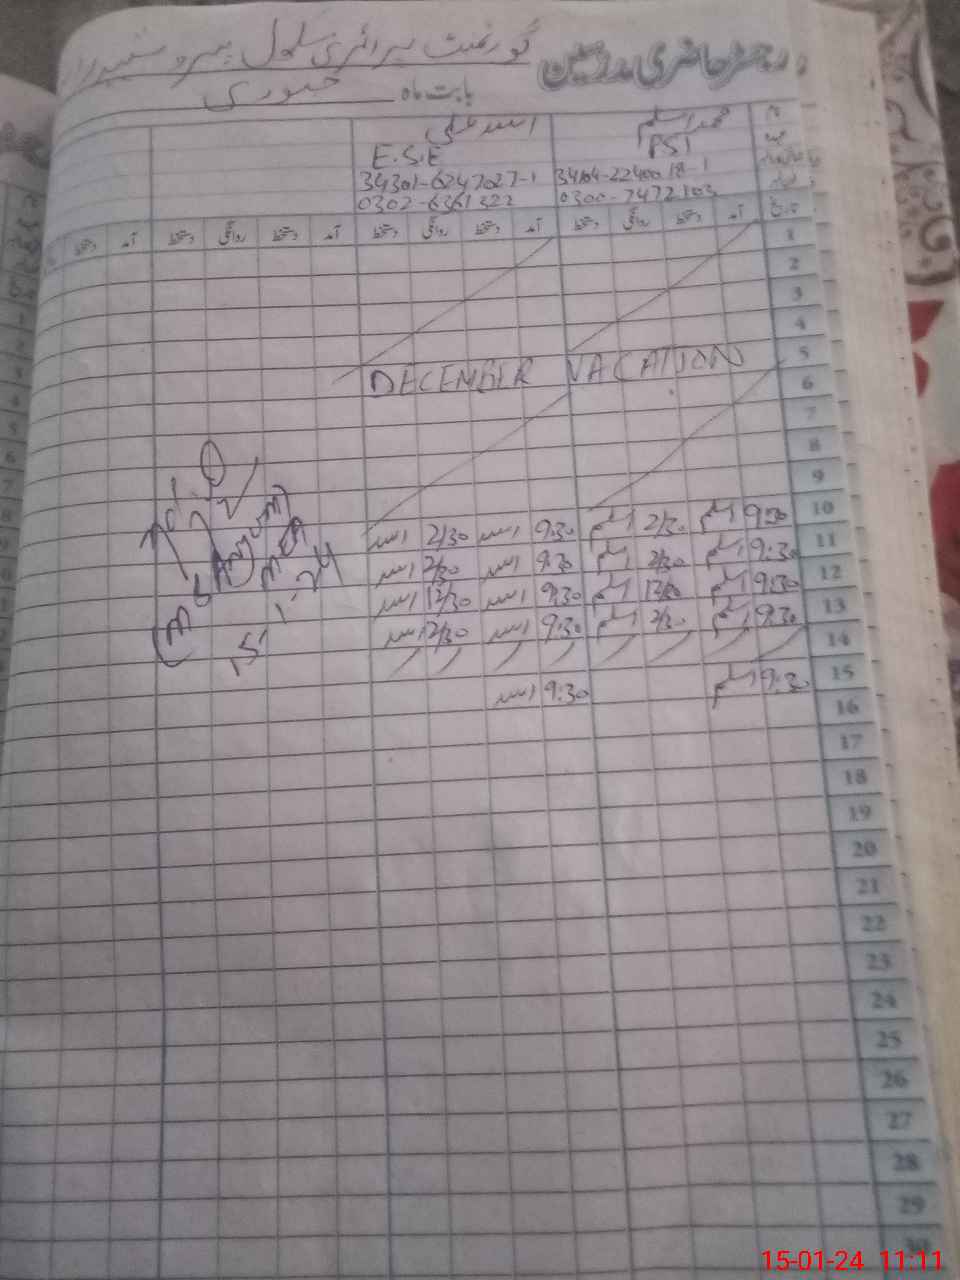 رجسٹر حاضری مدرسین گورنمنٹ پرائمری سکول
بابت ماہ جنوری
محمد اسلم
اسد علی
PST
E.S.E
34301-6247027-1
0300-7472103
0302-6361322
تاریخ آمد دستخط روانگی دستخط آمد دستخط روانگی دستخط آمد دستخط روانگی دستخط آمد دستخط
1
2
3
4
5
DECEMBER VACATION
6
7
8
9
10 9:30 اسلم 2/30 اسلم 9:30 اسد 2/30 اسد
11 9:30 اسلم 2/30 اسلم 9:30 اسد 2/30 اسد
12 9:30 اسلم 12/30 اسلم 9:30 اسد 12/30 اسد
13 9:30 اسلم 2/30 اسلم 9:30 اسد 12/30 اسد
14
15 9:30 اسلم 9:30 اسد
16
17
18
19
20
21
22
23
24
25
26
27
28
29
30
15-1-24
15-01-24 11:11